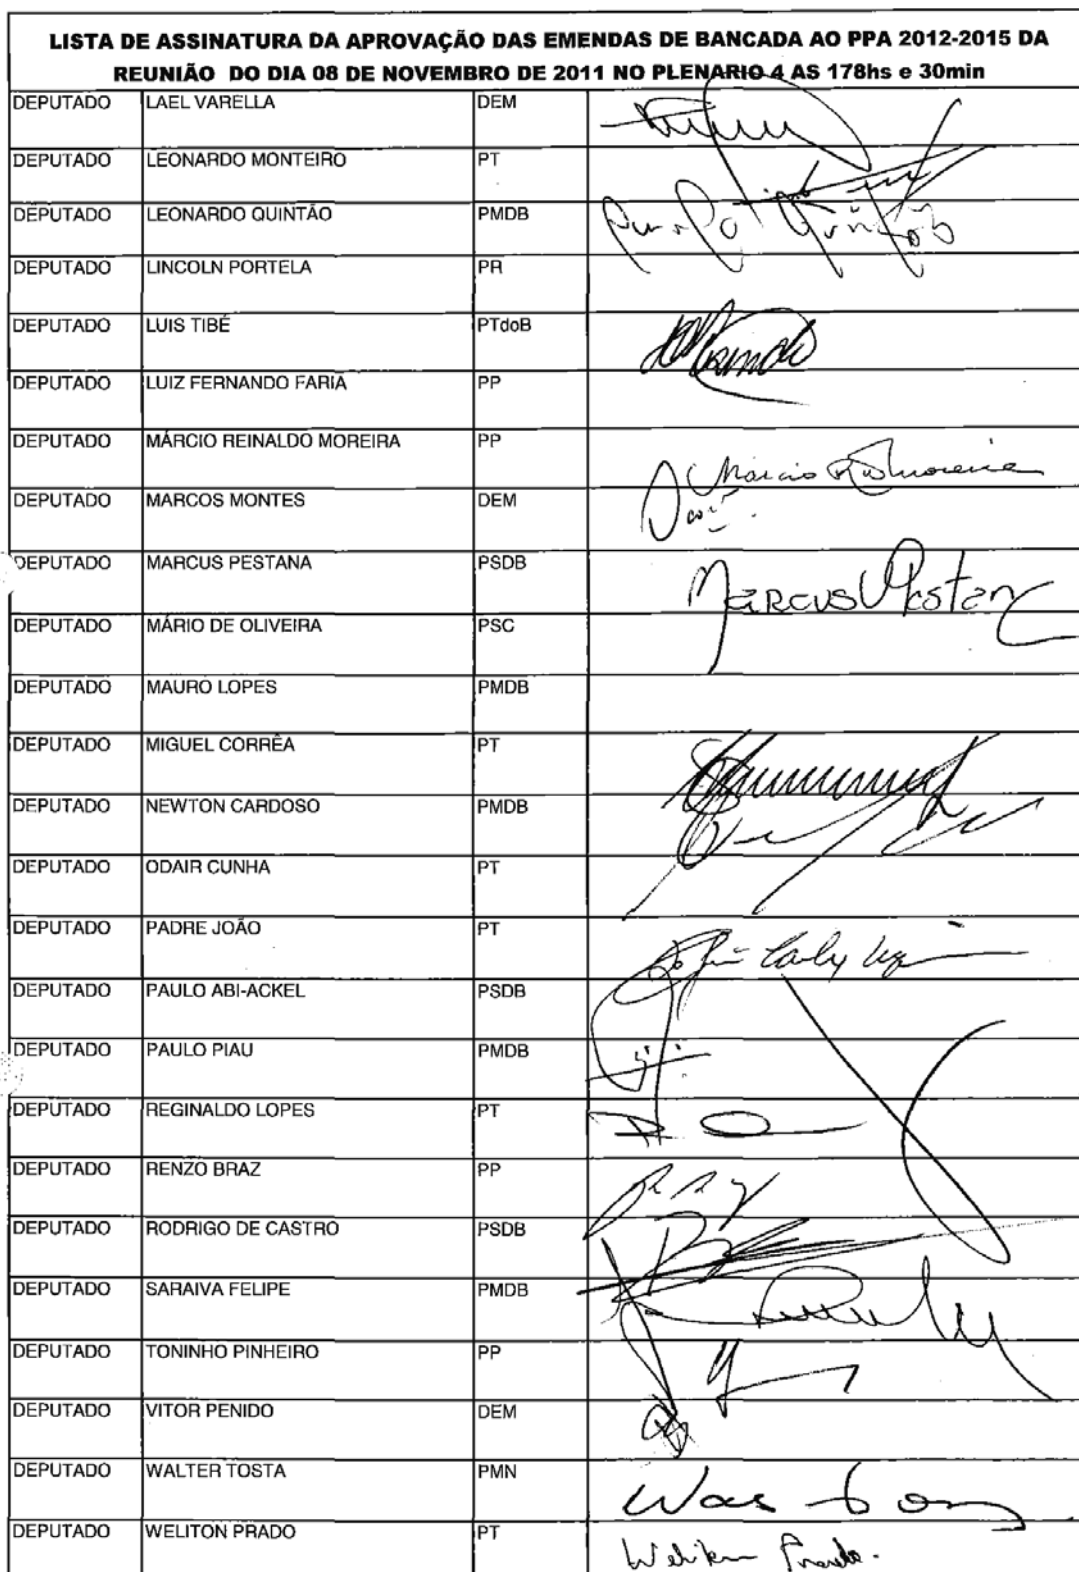 LISTA DE ASSINATURA DA APROVAÇÃO DAS EMENDAS DE BANCADA AO PPA 2012-2015 DA
REUNIÃO DO DIA 08 DE NOVEMBRO DE 2011 NO PLENARIO 4 AS 178hs e 30min
DEPUTADO LAEL VARELLA DEM
DEPUTADO LEONARDO MONTEIRO PT
DEPUTADO LEONARDO QUINTÃO PMDB
DEPUTADO LINCOLN PORTELA PR
DEPUTADO LUIS TIBÉ PTdoB
DEPUTADO LUIZ FERNANDO FARIA PP
DEPUTADO MÁRCIO REINALDO MOREIRA PP Marcio R Moreira
DEPUTADO MARCOS MONTES DEM
DEPUTADO MARCUS PESTANA PSDB Marcus Pestana
DEPUTADO MÁRIO DE OLIVEIRA PSC
DEPUTADO MAURO LOPES PMDB
DEPUTADO MIGUEL CORRÊA PT
DEPUTADO NEWTON CARDOSO PMDB
DEPUTADO ODAIR CUNHA PT
DEPUTADO PADRE JOÃO PT
DEPUTADO PAULO ABI-ACKEL PSDB
DEPUTADO PAULO PIAU PMDB
DEPUTADO REGINALDO LOPES PT
DEPUTADO RENZO BRAZ PP
DEPUTADO RODRIGO DE CASTRO PSDB
DEPUTADO SARAIVA FELIPE PMDB
DEPUTADO TONINHO PINHEIRO PP
DEPUTADO VITOR PENIDO DEM
DEPUTADO WALTER TOSTA PMN
DEPUTADO WELITON PRADO PT Weliton Prado.